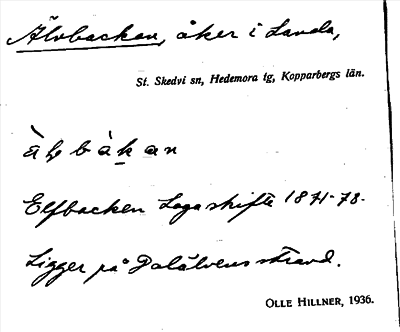 Älvbackan, åker i Landa,
St. Skedvi sn, Hedemora tg, Kopparbergs län.
Elfbacken Laga skifte 1871-78.
Ligger på Dalälvens strand.
OLLE HILLNER, 1936.